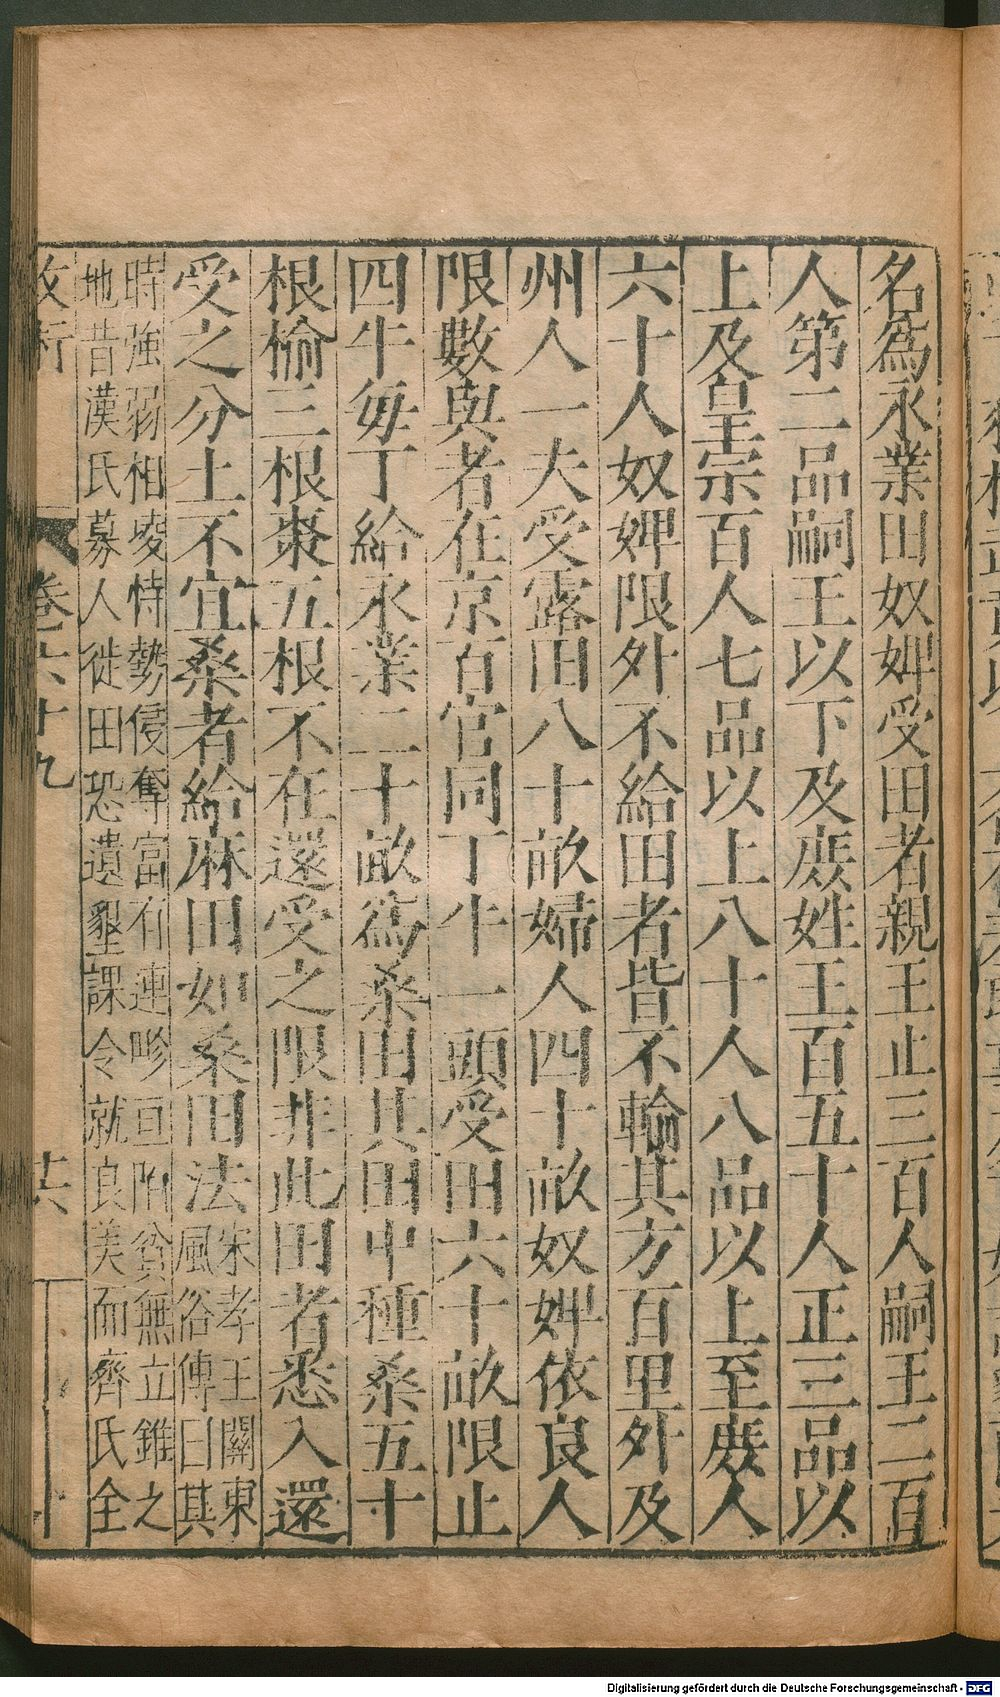 名爲永業田奴婢受田者親王止三百人嗣王二百
人第二品嗣王以下及庻姓王百五十人正三品以
上及皇宗百人七品以上八十人八品以上至庻人
六十人奴婢限外不給田者皆不輸其方百里外及
州人一夫受露田八十畝婦人四十畝奴婢依良人
限數與者在京百官同丁牛一頭受田六十畝限止
四牛每丁給永業二十畝爲桑田其田中種桑五十
根榆三根棗五根不在還受之限非此田者悉入還
受之分土不宜桑者給麻田如桑田法
宋孝王關東
風俗傳曰其
時強弱相凌恃勢侵奪富有連畛亘陌貧無立錐之
地昔漢氏募人徙田恐遺墾課令就良美而齊氏全
卷六十九
Digitalisierung gefördert durch die Deutsche Forschungsgemeinschaft - DFG